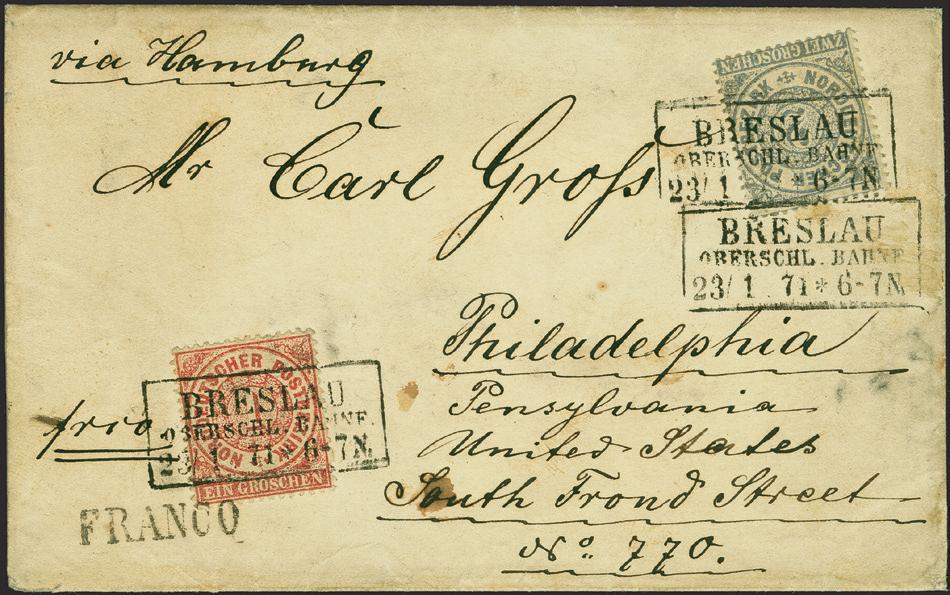 via Hamburg
ZWEI GROSCHEN
NORDD
Mr Carl Groſs
BRESLAU
OBERSCHL. BAHNF.
23/1 6-7N
BRESLAU
OBERSCHL. BAHNF.
23/1 71 * 6-7N.
Philadelphia
Pensylvania
United States
South Frond Street
No. 770.
NORDDEUTSCHER POSTBEZIRK
EIN GROSCHEN
BRESLAU
OBERSCHL. BAHNF.
23/1 71 * 6-7N.
frco
FRANCO